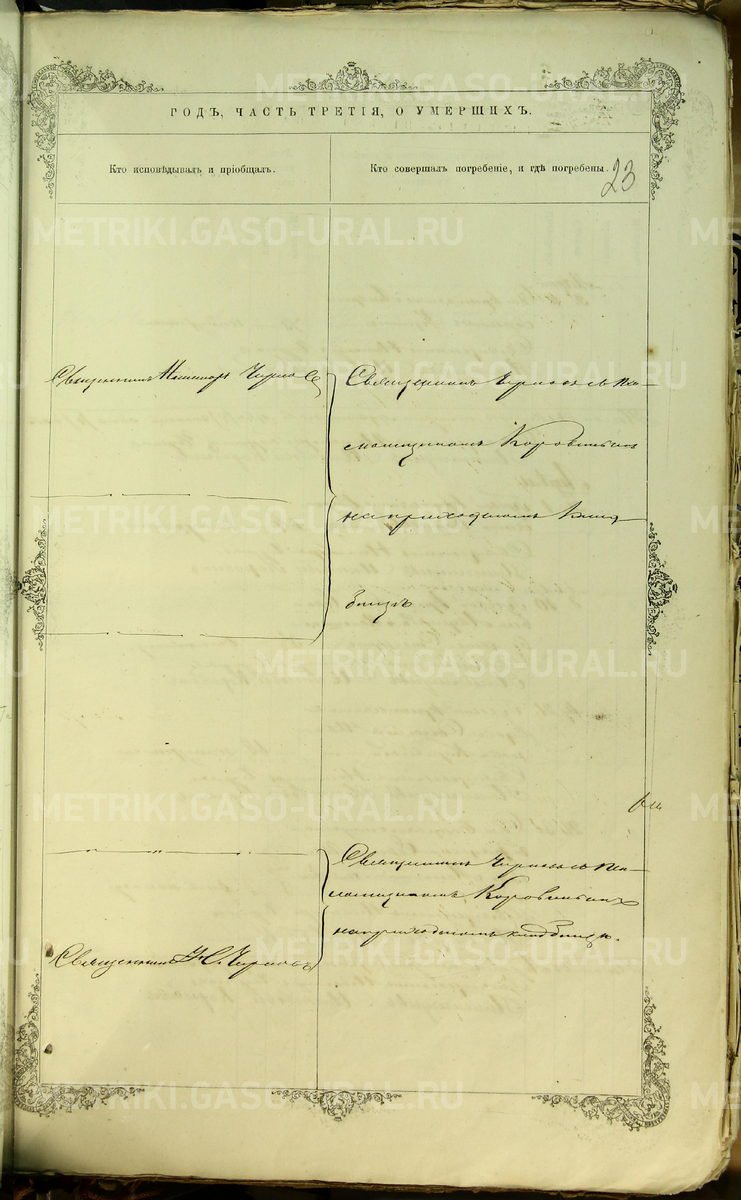 ГОДЪ, ЧАСТЬ ТРЕТІЯ, О УМЕРШИХЪ.
Кто исповѣдывалъ и пріобщалъ.
Кто совершалъ погребеніе, и гдѣ погребены.
23
Священникъ Чирковъ
Священникъ Чирковъ съ пса-
ломщикомъ Коровинымъ
на приходскомъ клад-
бищѣ
Священникъ Чирковъ съ пса-
ломщикомъ Коровинымъ
на приходскомъ кладбищѣ.
Священникъ Чирковъ
METRIKI.GASO-URAL.RU